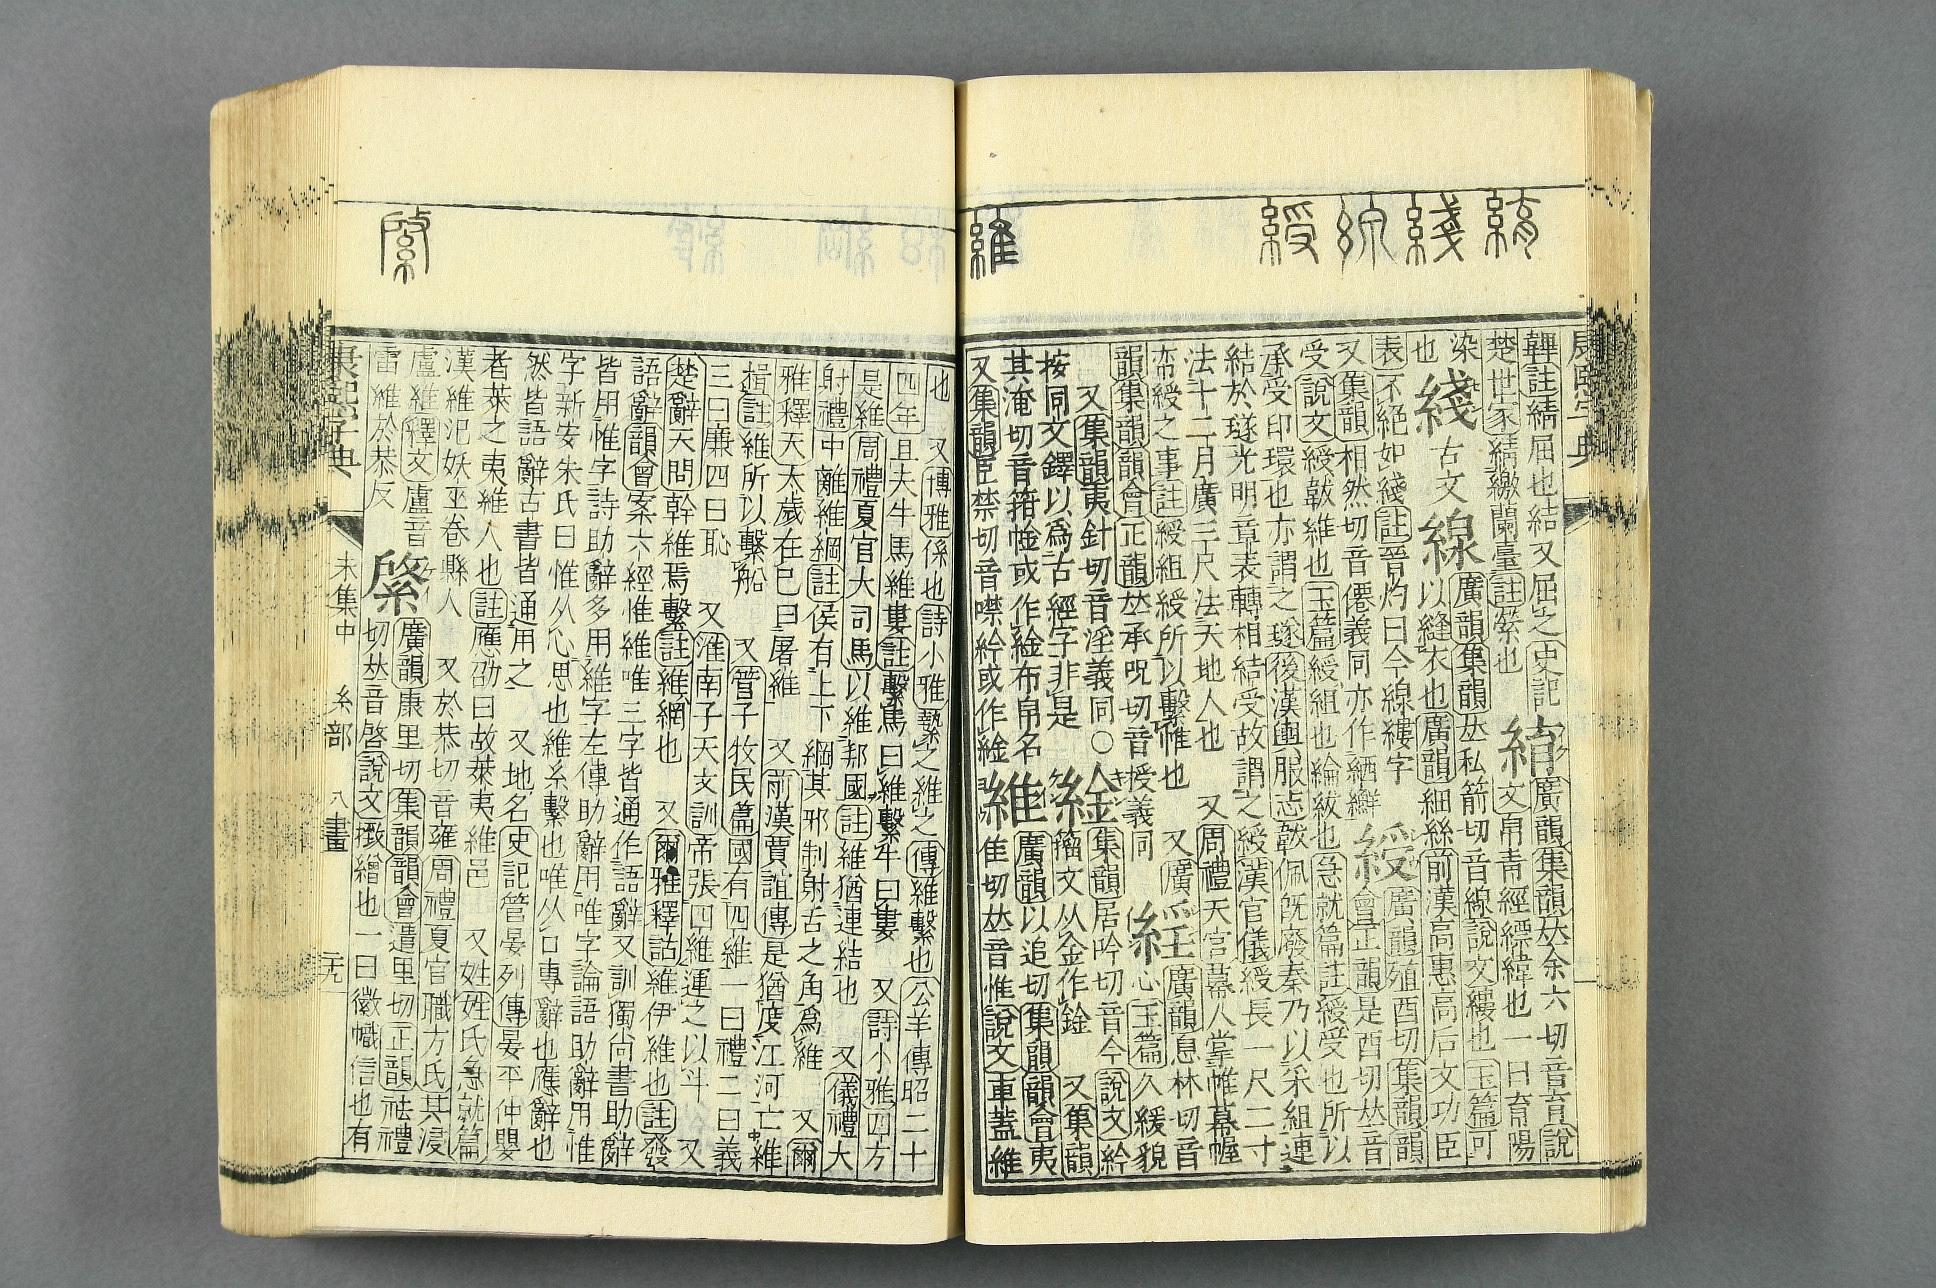 綫
綬
維
綮
康熙字典
韠註綪屈也結又屈之史記
楚世家綪繳蘭臺註縈也
廣韻集韻𠀤余六切音育說
文帛靑經縹緯也一曰育陽
染
也
綫
古文
線
廣韻集韻𠀤私箭切音線說文縷也玉篇可
以縫衣也廣韻細絲前漢高惠高后文功臣
表不絕如綫註晉灼曰今線縷字
又集韻相然切音僊義同亦作綇
綬
廣韻殖酉切集韻韻
會正韻是酉切𠀤音
受說文綬韍維也玉篇綬組也綸紱也急就篇註綬受也所以
承受印環也亦謂之璲後漢輿服志韍佩旣廢秦乃以采組連
結於璲光明章表轉相結受故謂之綬漢官儀綬長一尺二寸
法十二月廣三尺法天地人也 又周禮天官幕人掌帷幕幄
帟綬之事註綬組綬所以繫帷也 又廣
韻集韻韻會正韻𠀤承呪切音授義同
廣韻息林切音
心玉篇久緩貌
又集韻夷針切音淫義同○
按同文鐸以爲古經字非是
䋮
集韻居吟切音今說文紟
籀文从金作䋮 又集韻
其淹切音箝帢或作䋮布帛名
又集韻巨禁切音噤紟或作䋮
維
廣韻以追切集韻韻會夷
隹切𠀤音惟說文車蓋維
也 又博雅係也詩小雅縶之維之傳維繫也公羊傳昭二十
四年且夫牛馬維婁註繫馬曰維繫牛曰婁 又詩小雅四方
是維周禮夏官大司馬以維邦國註維猶連結也 又儀禮大
射禮中離維綱註侯有上下綱其邪制射舌之角爲維 又爾
雅釋天太歲在巳曰屠維 又前漢賈誼傳是猶度江河亡維
楫註維所以繫船 又管子牧民篇國有四維一曰禮二曰義
三曰廉四曰恥 又淮南子天文訓帝張四維運之以斗 又
楚辭天問幹維焉繫註維綱也 又爾雅釋詁維伊維也註發
語辭韻會案六經惟維唯三字皆通作語辭又訓獨尙書助辭
皆用惟字詩助辭多用維字左傳助辭用唯字論語助辭用惟
字新安朱氏曰惟从心思也維糸繫也唯从口專辭也應辭也
然皆語辭古書皆通用之 又地名史記管晏列傳晏平仲嬰
者萊之夷維人也註應劭曰故萊夷維邑 又姓姓氏急就篇
漢維汜妖巫卷縣人 又於恭切音雍周禮夏官職方氏其浸
盧維釋文盧音
雷維於恭反
綮
廣韻康里切集韻韻會遣里切正韻祛禮
切𠀤音啓說文㨖繒也一曰徽幟信也有
康熙字典
未集中
糸部
八畫
二九